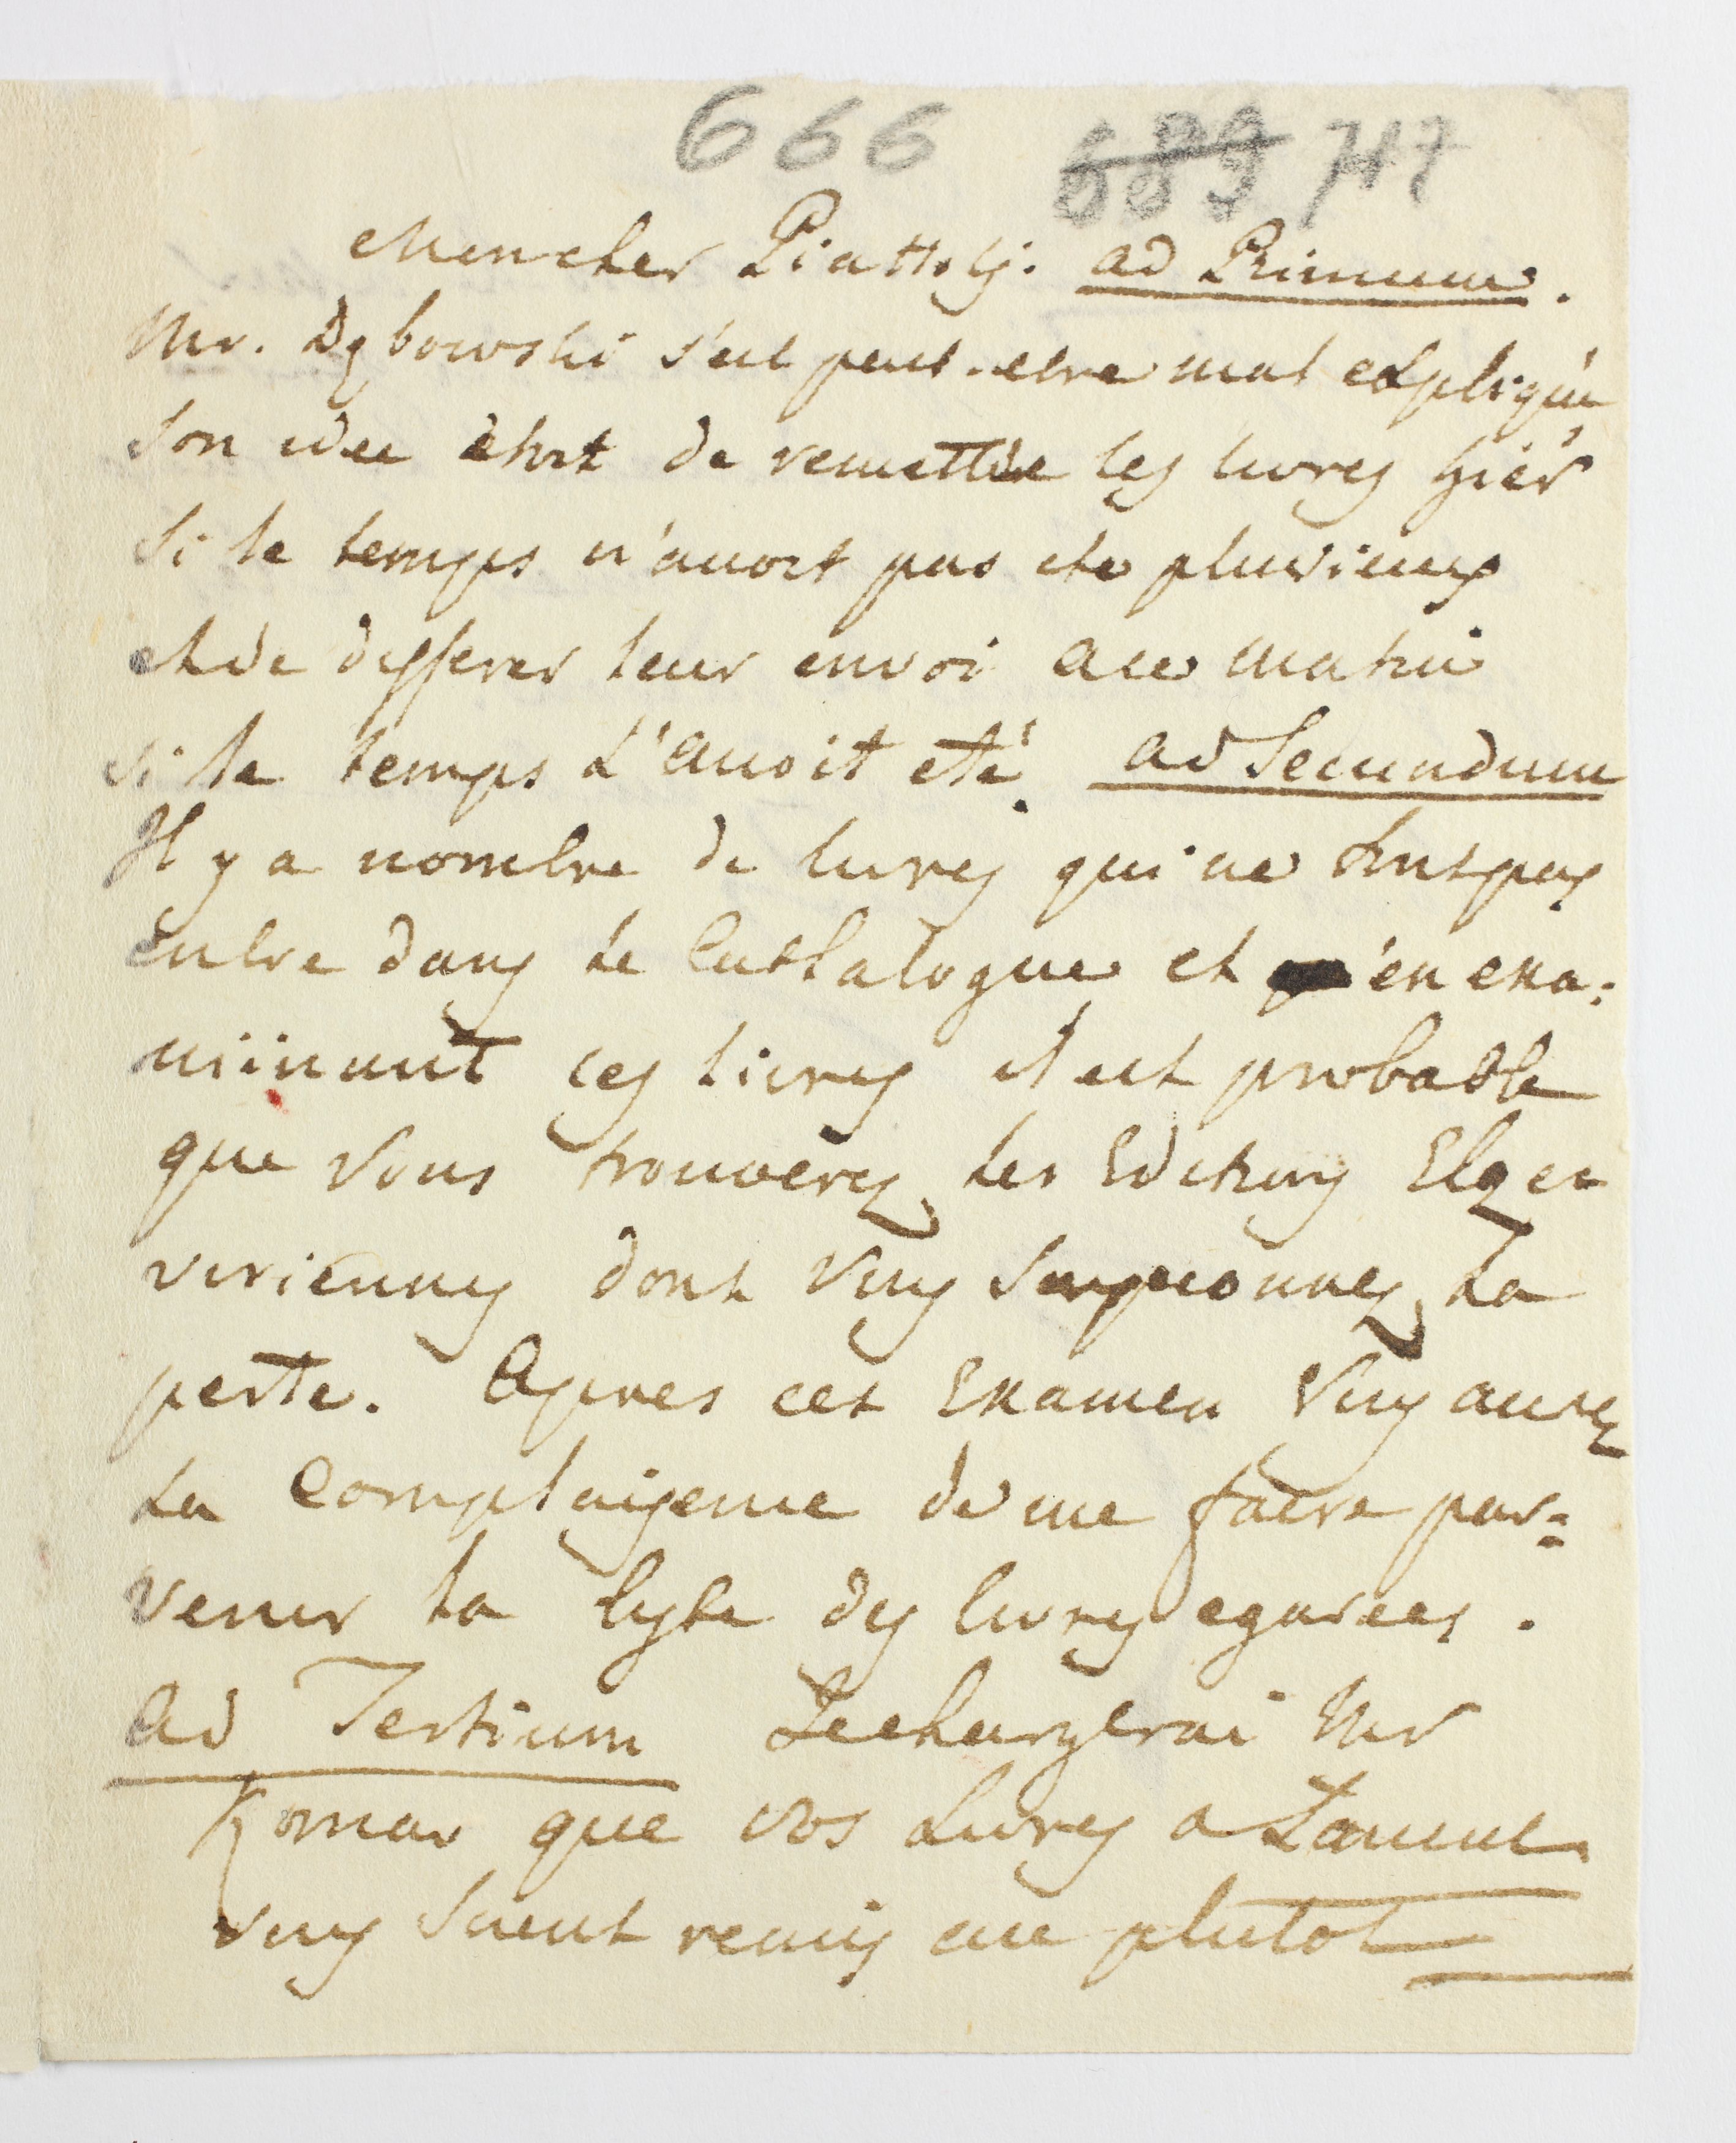 666 689 717
Moncher Piattoly. ad Primum.
Mr. Dębowski s'est peut-etre mal expliqué
Son idee etoit de remettre les livres hier
Si le temps n'avoit pas ete pluvieux
et de differer leur envoi au matin
si le temps l'avoit été. ad Secundum
Il y a nombre de livres qui ne sont pas
entre dans le Cathalogue et en exa:
minant ces livres il est probable
que Vous trouverez les Editions Elze
viriennes dont Vous soupconnez la
perte. Apres cet Examen Vous aurez
la Complaisence de me faire par=
venir la lyste des livres egarees.
Ad Tertium Je chargerai Mr
Komar que vos Livres a
Vous soient remis au plutot